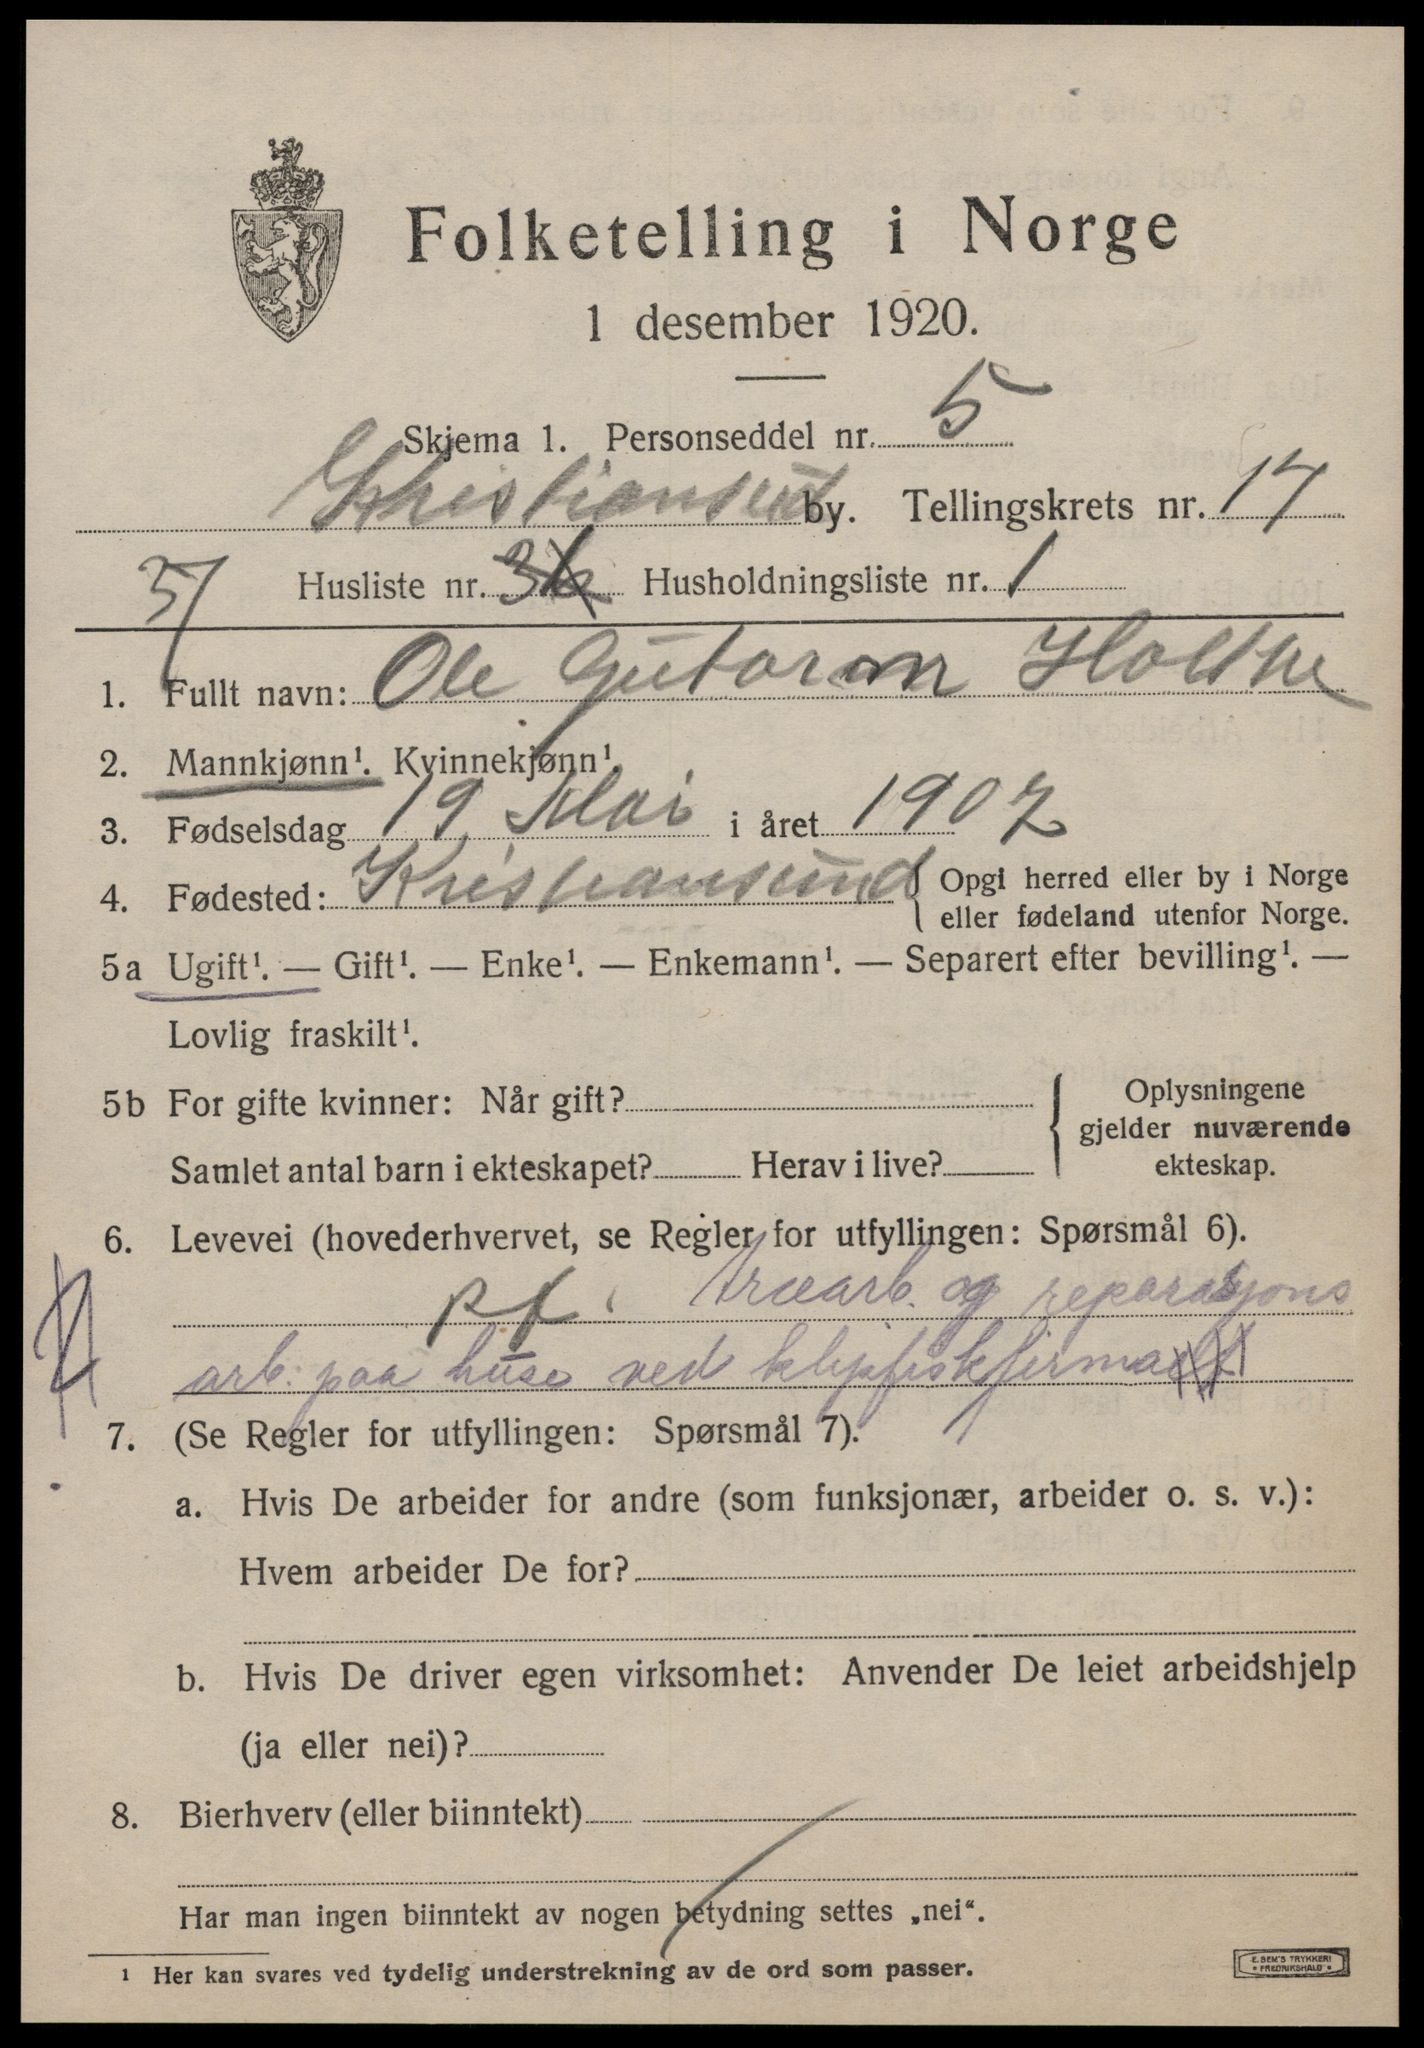 Folketelling i Norge
1 desember 1920.
Skjema 1. Personseddel nr. 5
Kristiansund by. Tellingskrets nr. 17
37 Husliste nr. Husholdningsliste nr. 1
1. Fullt navn: Ole Gutorm Holthe
2. Mannkjønn¹. Kvinnekjønn¹.
3. Fødselsdag 19 Mai i året 1907
4. Fødested: Kristiansund { Opgi herred eller by i Norge
eller fødeland utenfor Norge.
5a Ugift¹. — Gift¹. — Enke¹. — Enkemann¹. — Separert efter bevilling¹. —
Lovlig fraskilt¹.
5b For gifte kvinner: Når gift? { Oplysningene
gjelder nuværende
Samlet antal barn i ekteskapet? Herav i live? ekteskap.
6. Levevei (hovederhvervet, se Regler for utfyllingen: Spørsmål 6).
pf. træarb. og reparasjons
arb. paa huse ved klipfiskfirma
7. (Se Regler for utfyllingen: Spørsmål 7).
a. Hvis De arbeider for andre (som funksjonær, arbeider o. s. v.):
Hvem arbeider De for?
b. Hvis De driver egen virksomhet: Anvender De leiet arbeidshjelp
(ja eller nei)?
8. Bierhverv (eller biinntekt)
Har man ingen biinntekt av nogen betydning settes „nei“.
¹ Her kan svares ved tydelig understrekning av de ord som passer.
E. SEM'S TRYKKERI
• FREDRIKSHALD •